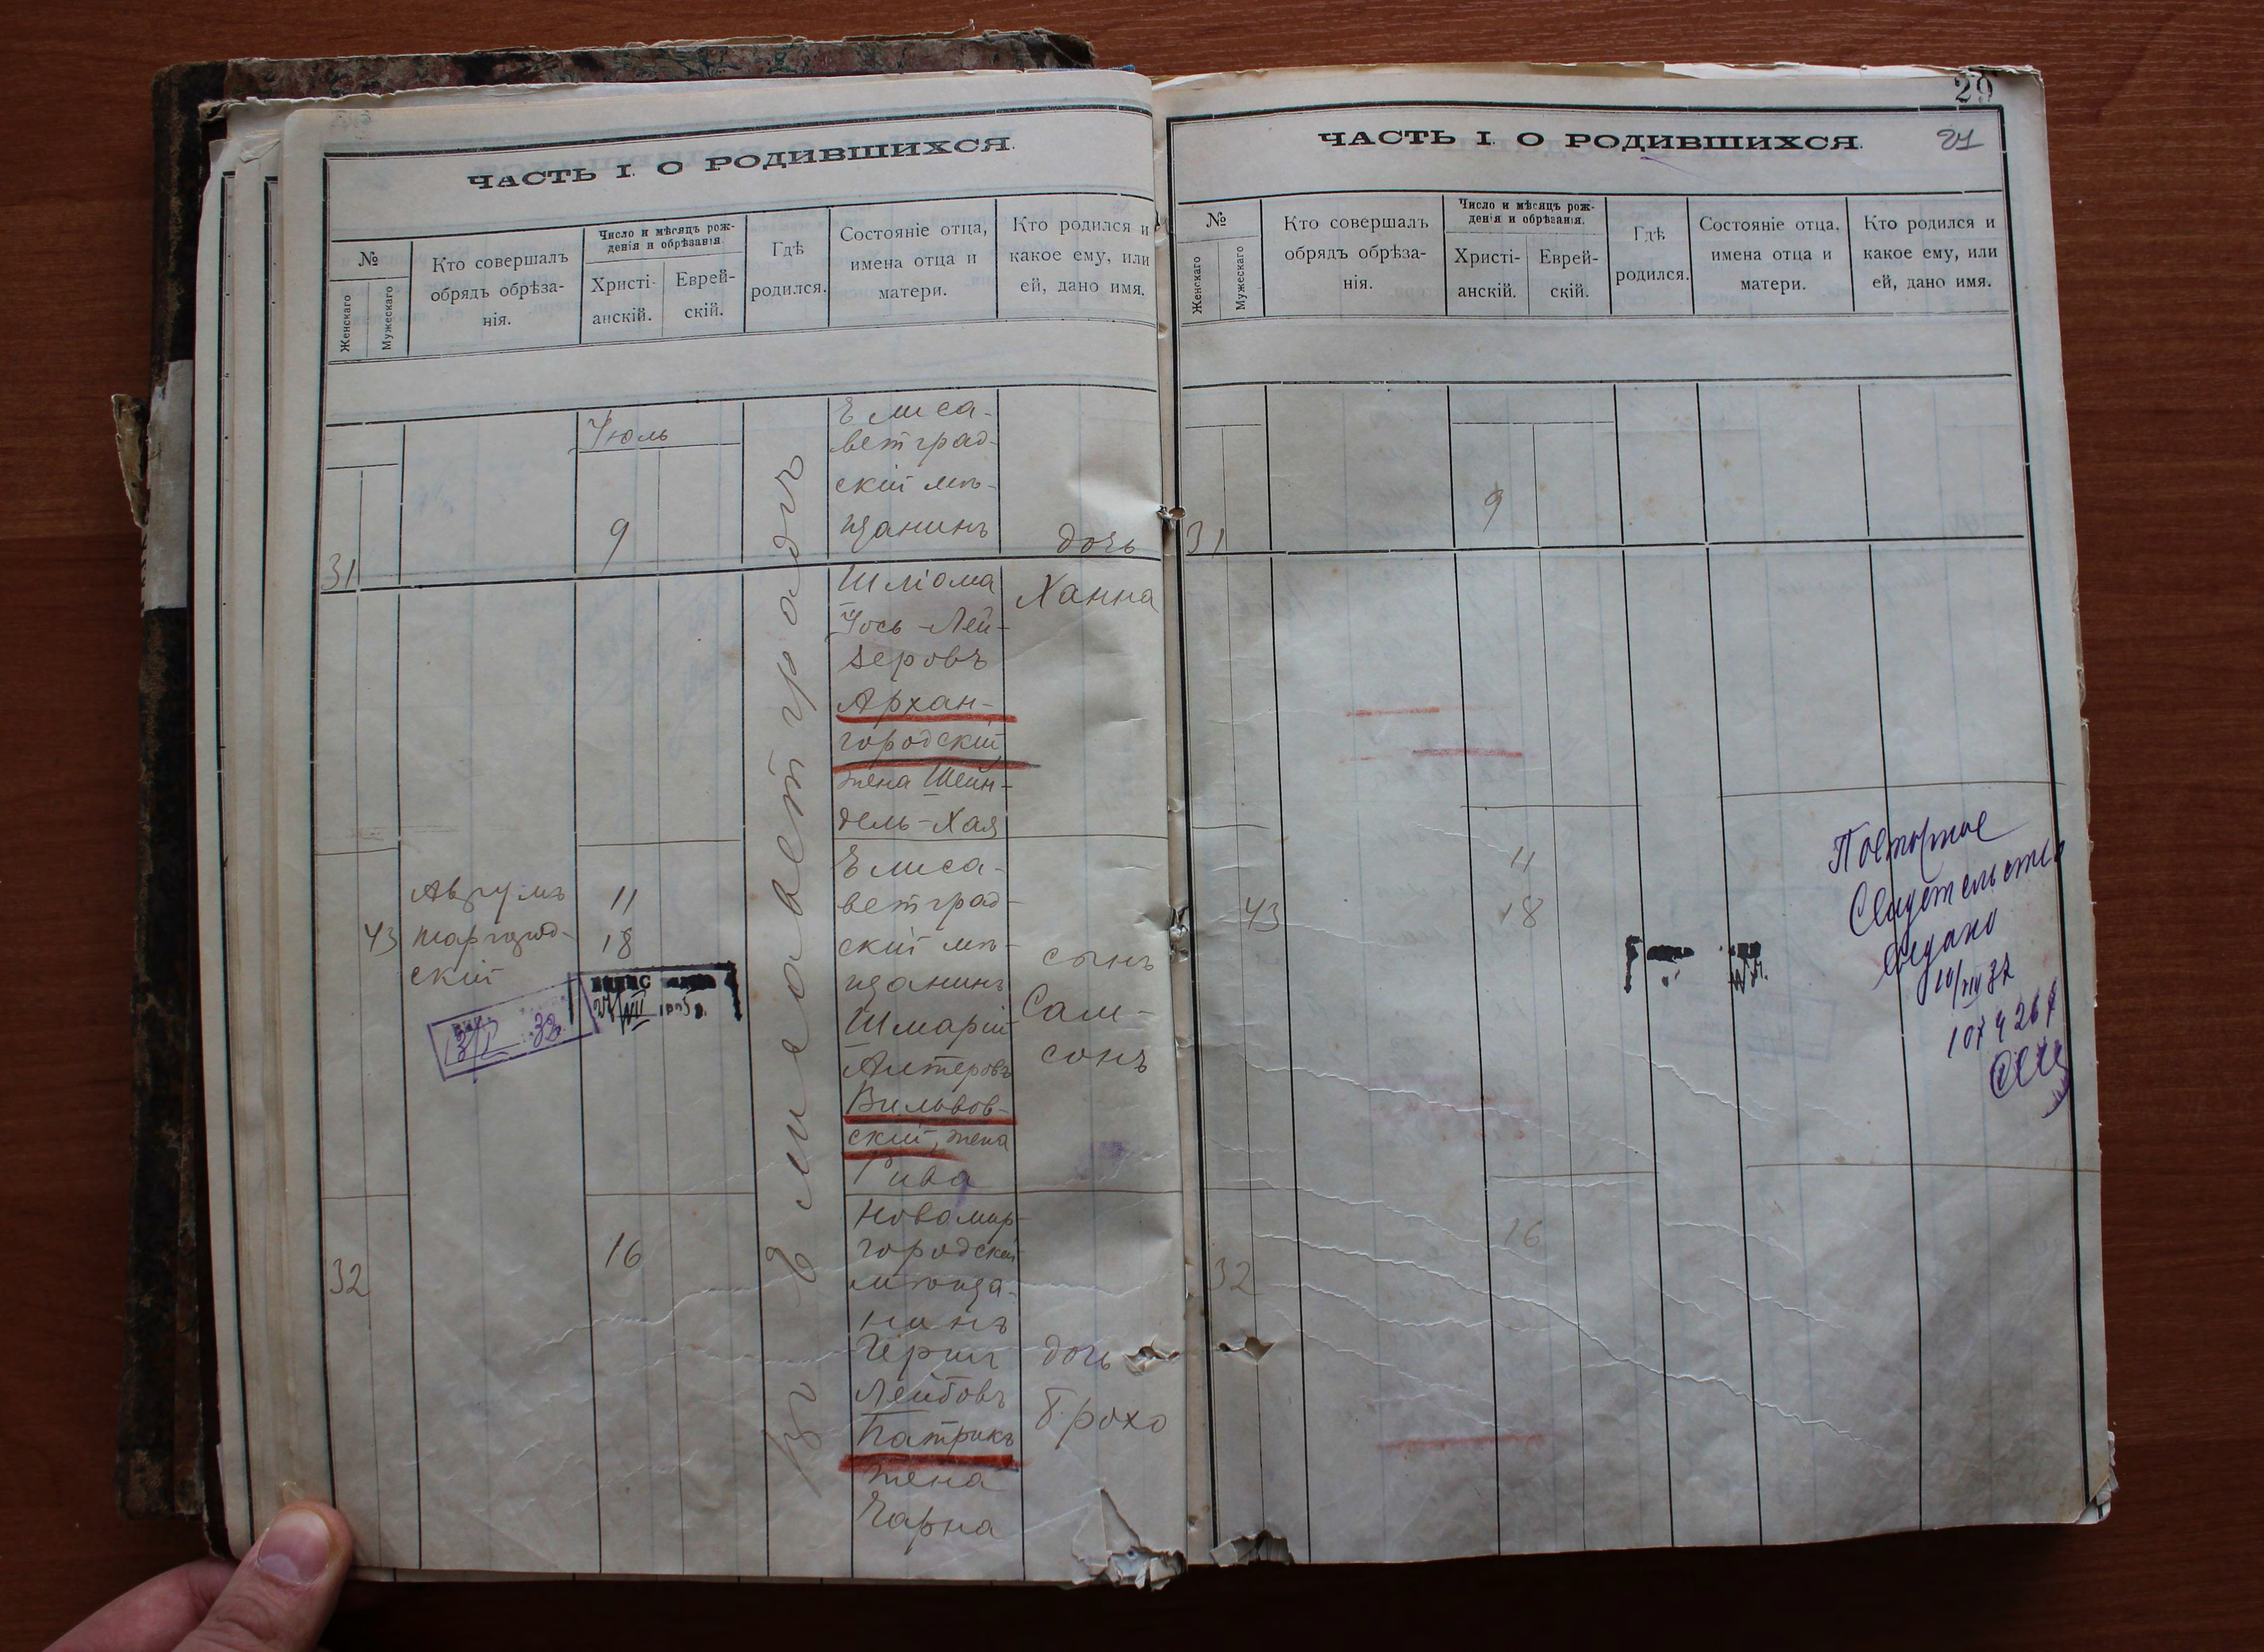 ЧАСТЬ I. О РОДИВШИХСЯ.
№
Женскаго
Мужескаго
Кто совершалъ
обрядъ обрѣза-
нія.
Число и мѣсяцъ рож-
денія и обрѣзанія.
Христі-
анскій.
Еврей-
скій.
Гдѣ
родился.
Состояніе отца,
имена отца и
матери.
Кто родился и
какое ему, или
ей, дано имя.
Въ Елисаветградѣ
31
Июль
9
Елиса-
ветград-
скій мѣ-
щанинъ
Шліома
Іось-Лей-
зеровъ
Архан-
городскій
жена Шейн-
дель-Хая
дочь
Ханна
43
Аврумъ
скій
11
18
Елиса-
ветград-
скій мѣ-
щанинъ
Шмарій
Алтеровъ
Вильков-
скій, жена
Рива
сынъ
Сам-
сонъ
32
16
Новомир-
городскій
мѣща-
нинъ
Герш
Лейбовъ
Патрикъ
жена
Чарна
дочь
Брохо
29
21
ЧАСТЬ I. О РОДИВШИХСЯ.
№
Женскаго
Мужескаго
Кто совершалъ
обрядъ обрѣза-
нія.
Число и мѣсяцъ рож-
денія и обрѣзанія.
Христі-
анскій.
Еврей-
скій.
Гдѣ
родился.
Состояніе отца,
имена отца и
матери.
Кто родился и
какое ему, или
ей, дано имя.
31
9
43
11
18
Повторное
Свидетельство
выдано
32
16